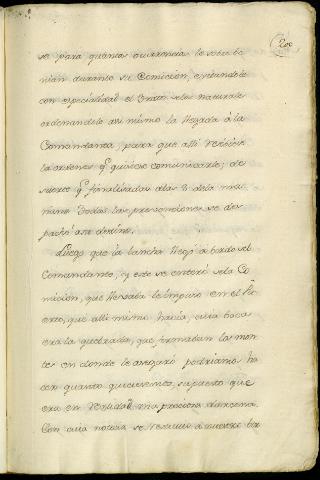 200
se para quantas ocurrencias le sobreve
nian durante su Comicion, evitandole
con especialidad el trato delos naturales
ordenandole asi mismo la llegada á la
Comandanta, para que alli reciviese
las ordenes qe. quisiese comunicarle; de
suerte qe. finalizadas alas 8 dela ma
ñana todas las prevenciones se des
pachó a su destino.
Luego que la lancha llegó abordo del
Comandante, y este se enteró dela Co
micion, que llevaba le impuso en el Pu
erto, que alli mismo havia, cuia boca
era la quebrada, que formaban los mon
tes en donde le aseguró podriamos ha
cer quanto quisiesemos, supuesto que
era en realidad una preciosa darcena.
Con cuia noticia se